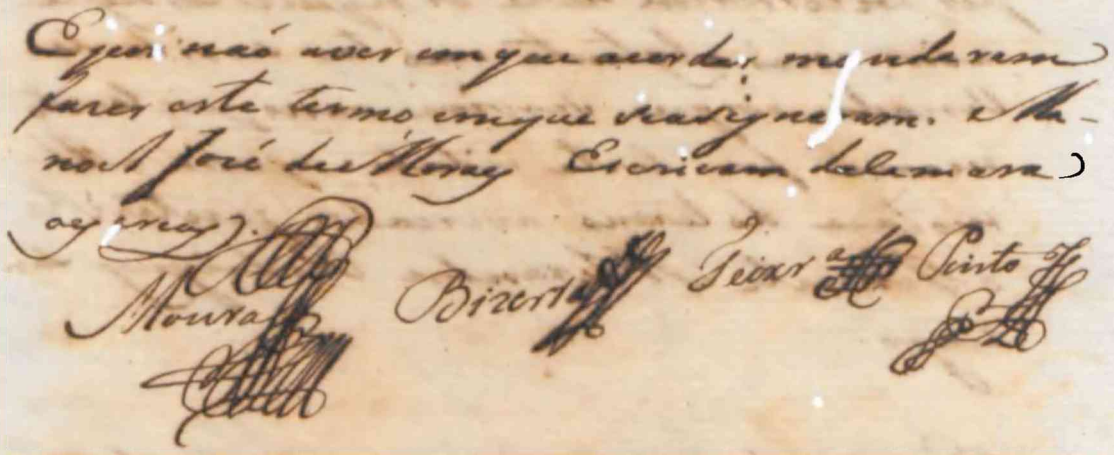 E por não aver emque acordar mandaram
fazer este termo emque seasignaram. Ma-
noel José de Moraes Escrivam daCamara
oescrevy
Moura Bizerra Teixrª Pinto